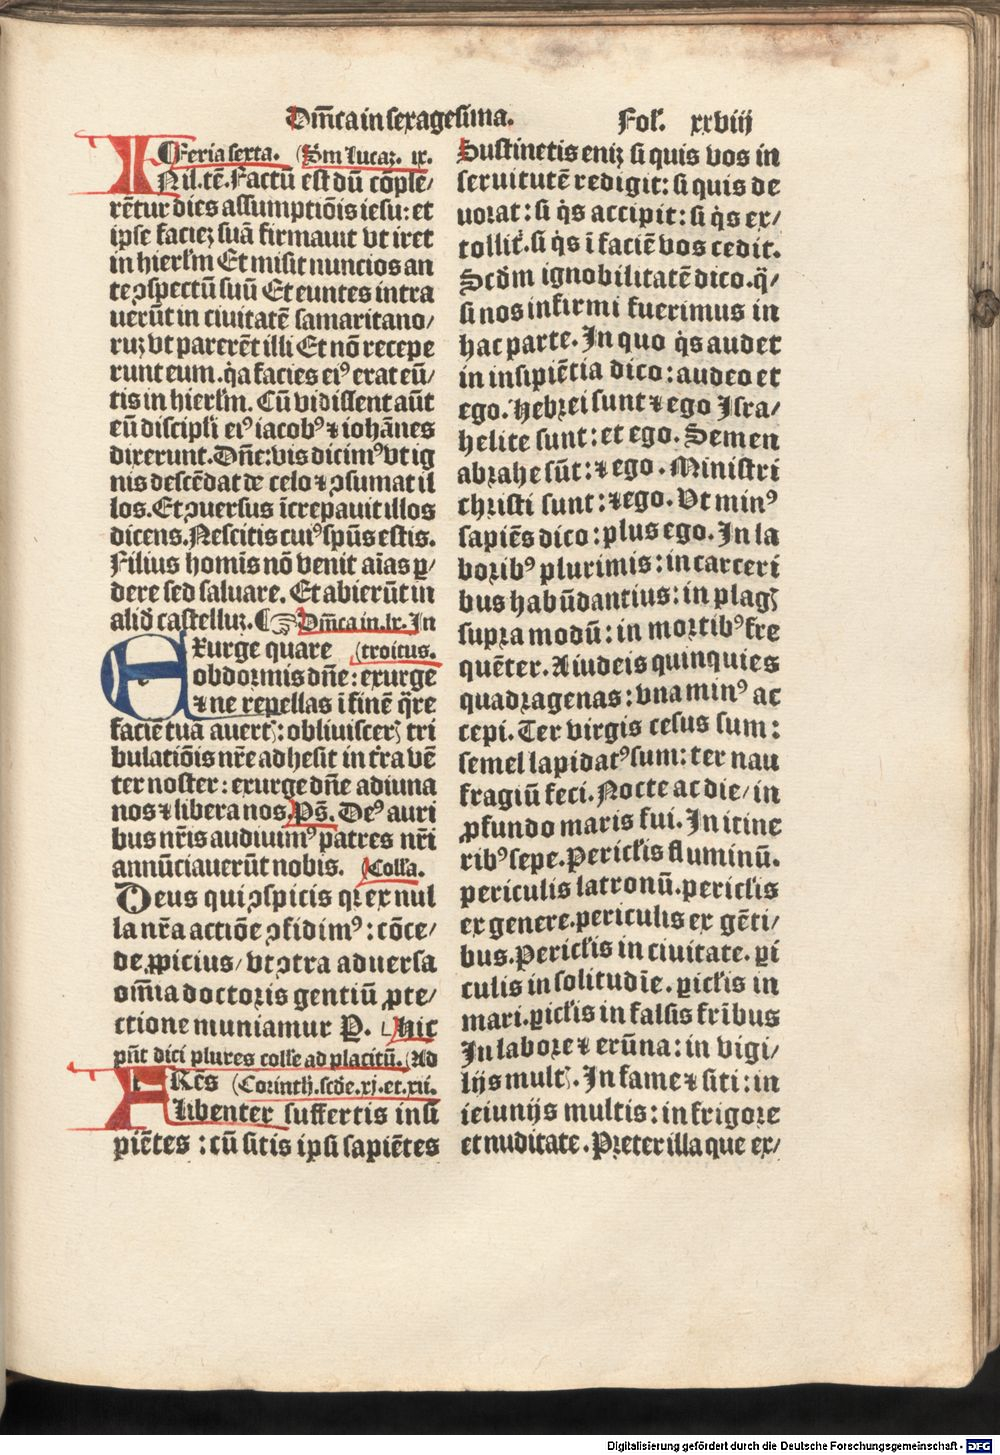 Dn̄ica in sexagesima. Fol. xxviij
Feria sexta. (Sm Lucaꝫ. ix.
IN il. tē. Factū est dū cōple/
rētur dies assumptiōis iesu: et
ipse facieꝫ suā firmauit vt iret
in hierlm̄ Et misit nuncios an
te ꝯspectū suū Et euntes intra
uerūt in ciuitatē samaritano/
ruꝫ vt parerēt illi Et nō recepe
runt eum. q̇a facies eiꝰ erat eū/
tis in hierlm̄. Cū vidissent aūt
eū discipl̓i eiꝰ iacobꝰ ⁊ iohānes
dixerunt. Dn̄e: vis dicimꝰ vt ig
nis descēdat de celo ⁊ ꝯsumat il
los. Et ꝯuersus īcrepauit illos
dicens. Nescitis cuiꝰ spūs estis.
Filius homīs nō venit aīas ꝑ/
dere sed saluare. Et abierūt in
aliđ castelluꝫ. ⸿☞ Dn̄ica in. lx. In
Exurge quare (troitus.
obdormis dn̄e: exurge
⁊ ne repellas ī finē q̄re
faciē tua auertꝭ: obliuiscerꝭ tri
bulatiōis nr̄e adhesit in tr̄a vē
ter noster: exurge dn̄e adiuua
nos ⁊ libera nos. Ps̄. Deꝰ auri
bus nr̄is audiuimꝰ patres nr̄i
annūciauerūt nobis. (Coll̓a.
Deus qui ꝯspicis qꝛ ex nul
la nr̄a actiōe ꝯfidimꝰ: cōce/
de ꝓpicius/ vt ꝯtra aduersa
om̄ia doctoris gentiū ꝓte/
ctione muniamur P. Hic
pn̄t dici plures coll̓e ad placitū. (Ad
FRēs (Corinth̄. scđe. xj. et. xii.
Libenter suffertis insi
piētes: cū sitis ipsi sapiētes
Sustinetis eniꝫ si quis vos in
seruitutē redigit: si quis de
uorat: si q̇s accipit: si q̇s ex/
tollit̄. si q̇s ī faciē vos cedit.
Scđm ignobilitatē dico. q̄/
si nos infirmi fuerimus in
hac parte. In quo q̇s audet
in insipiētia dico: audeo et
ego. Hebrei sunt ⁊ ego Isra/
helite sunt: et ego. Semen
abrahe sūt: ⁊ ego. Ministri
christi sunt: ⁊ ego. Vt minꝰ
sapiēs dico: plus ego. In la
boribꝰ plurimis: in carceri
bus habūdantius: in plagꝭ
supra modū: in mortibꝰ fre
quēter. A iudeis quinquies
quadragenas: vna minꝰ ac
cepi. Ter virgis cesus sum:
semel lapidatꝰ sum: ter nau
fragiū feci. Nocte ac die/ in
ꝓfundo maris fui. In itine
ribꝰ sepe. Pericl̓is fluminū.
periculis latronū. pericl̓is
ex genere. periculis ex gēti/
bus. Pericl̓is in ciuitate. ꝑi
culis in solitudīe. ꝑicl̓is in
mari. ꝑicl̓is in falsis fr̄ibus
In labore ⁊ erūna: in vigi/
lijs multꝭ. In fame ⁊ siti: in
ieiunijs multis: in frigore
et nuditate. Preter illa que ex/
Digitalisierung gefördert durch die Deutsche Forschungsgemeinschaft - DFG